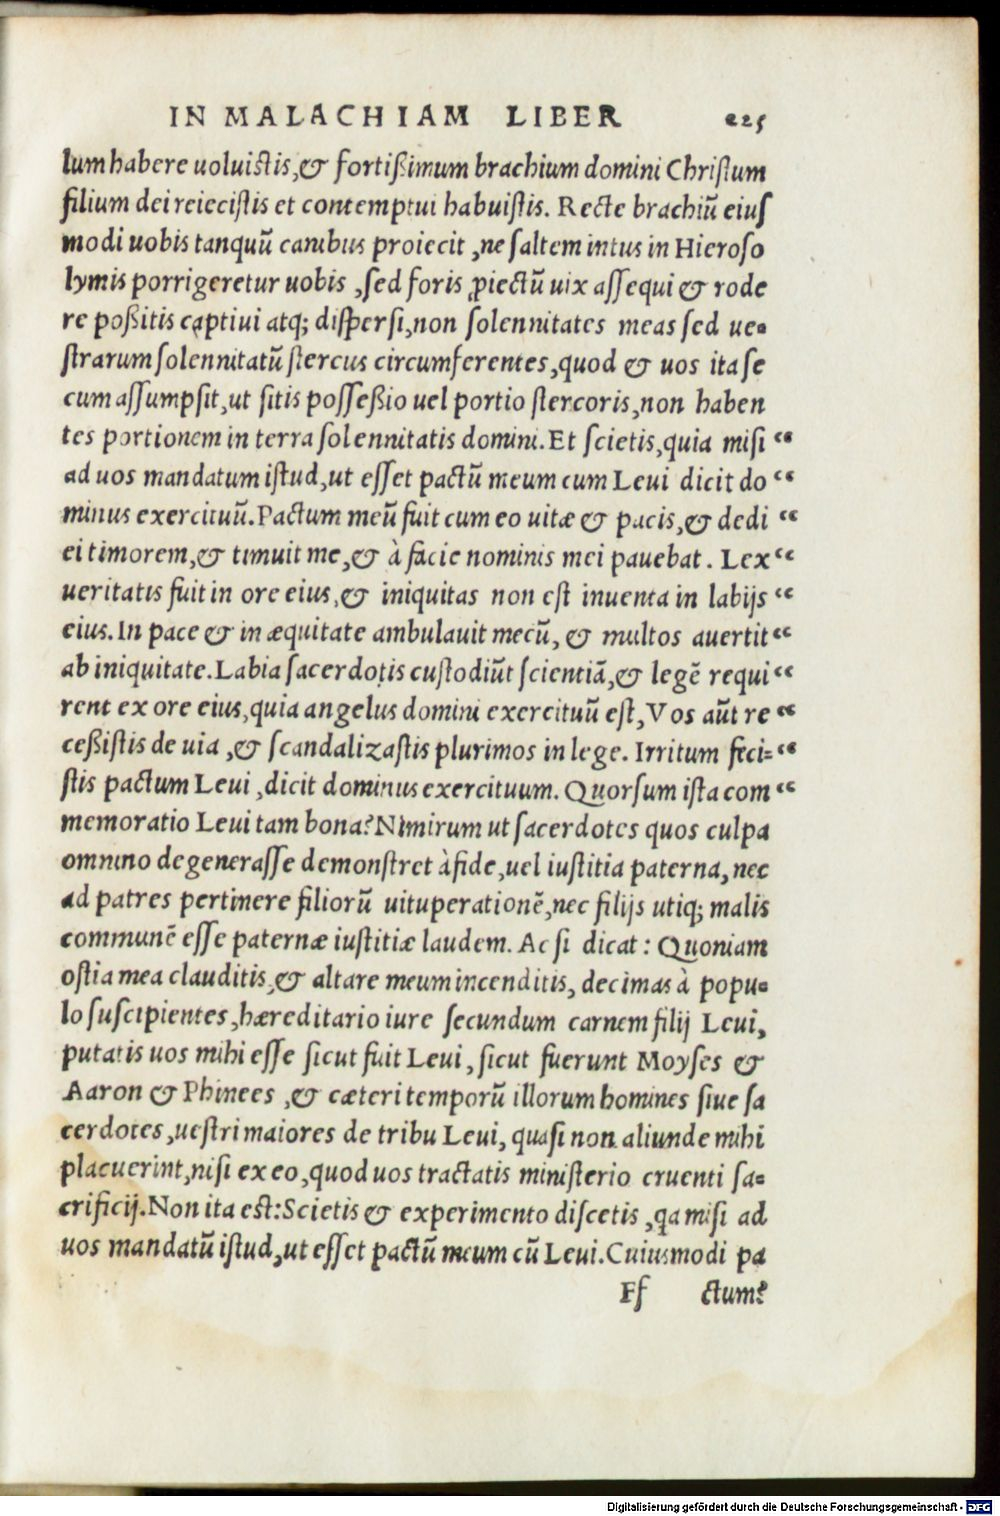 IN MALACHIAM LIBER 225
lum habere uoluistis, & fortißimum brachium domini Christum
filium dei reiecistis et contemptui habuistis. Recte brachiū eius
modi uobis tanquū canibus proiecit, ne saltem intus in Hieroso
lymis porrigeretur uobis, sed foris ꝓiectū uix assequi & rode
re poßitis captiui atq; dispersi, non solennitates meas sed ue=
strarum solennitatū stercus circumferentes, quod & uos ita se
cum assumpsit, ut sitis posseßio uel portio stercoris, non haben
tes portionem in terra solennitatis domini. Et scietis, quia misi “
ad uos mandatum istud, ut esset pactū meum cum Leui dicit do “
minus exercituū. Pactum meū fuit cum eo uitæ & pacis, & dedi “
ei timorem, & timuit me, & à facie nominis mei pauebat. Lex “
ueritatis fuit in ore eius, & iniquitas non est inuenta in labijs “
eius. In pace & in æquitate ambulauit mecū, & multos auertit “
ab iniquitate. Labia sacerdotis custodiūt scientiā, & legē requi “
rent ex ore eius, quia angelus domini exercituū est, Vos aūt re “
ceßistis de uia, & scandalizastis plurimos in lege. Irritum feci= “
stis pactum Leui, dicit dominus exercituum. Quorsum ista com “
memoratio Leui tam bona? Nimirum ut sacerdotes quos culpa
omnino degenerasse demonstret à fide, uel iustitia paterna, nec
ad patres pertinere filiorū uituperationē, nec filijs utiq; malis
communē esse paternæ iustitiæ laudem. Ac si dicat: Quoniam
ostia mea clauditis, & altare meum incenditis, decimas à popu=
lo suscipientes, hæreditario iure secundum carnem filij Leui,
putatis uos mihi esse sicut fuit Leui, sicut fuerunt Moyses &
Aaron & Phinees, & cæteri temporū illorum homines siue sa
cerdotes, uestri maiores de tribu Leui, quasi non aliunde mihi
placuerint, nisi ex eo, quod uos tractatis ministerio cruenti sa=
crificij. Non ita est: Scietis & experimento discetis, qa misi ad
uos mandatū istud, ut esset pactū meum cū Leui. Cuiusmodi pa
Ff ctum?
Digitalisierung gefördert durch die Deutsche Forschungsgemeinschaft - DFG